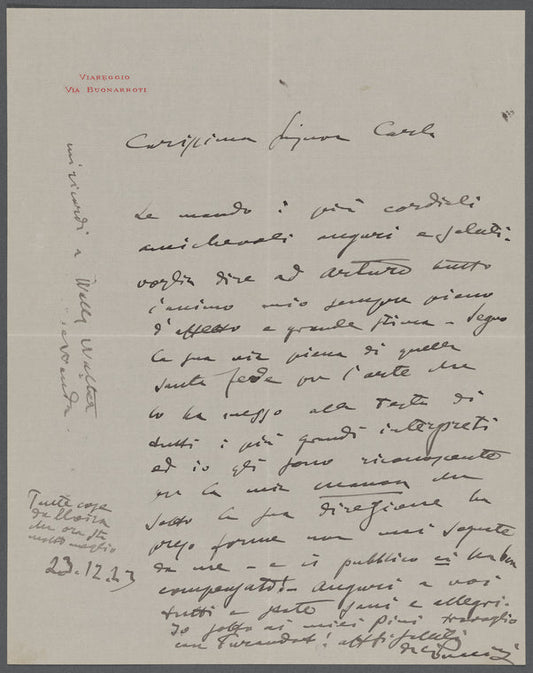 VIAREGGIO
VIA BUONARROTI
Carissima Signora Carla
Le mando i più cordiali
amichevoli auguri e saluti.
voglia dire ad Arturo tutto
l'animo mio sempre pieno
d'affetto e grande stima - Seguo
la sua via piena di quella
santa fede per l'arte che
lo ha messo alla testa di
tutti i più grandi interpreti
ed io gli sono riconoscente
per la mia manon che
sotto la sua direzione ha
preso forme non mai sapute
da me - e il pubblico vi ha ben
compensati. Auguri a voi
tutti e state sani e allegri.
Io sotto ai miei pini travaglio
con Turandot! affti saluti
del Puccini
mi ricordi a Wally Walter
e Wanda.
Tutte cose
da Elvira
che ora sta
molto meglio
23.12.23